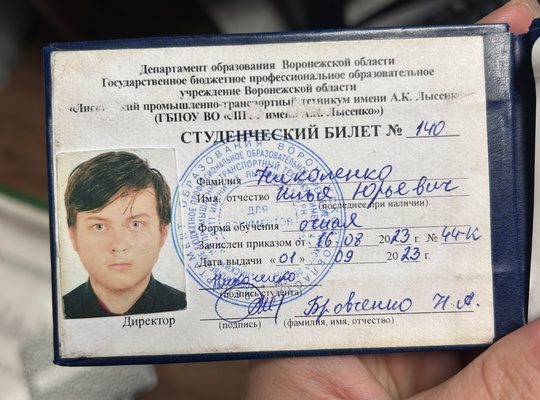 Департамент образования Воронежской области
Государственное бюджетное профессиональное образовательное
учреждение Воронежской области
промышленно-транспортный техникум имени А.К. Лысенко»
(ГБПОУ ВО имени А.К. Лысенко»)
СТУДЕНЧЕСКИЙ БИЛЕТ № 140
Фамилия
Имя, отчество Илья Юрьевич
(последнее при наличии)
Форма обучения очная
Зачислен приказом от 16.08 2023 г. № 44-К
Дата выдачи «01» 09 2023 г.
(подпись студента)
Директор Бровченко Н.А.
(подпись) (фамилия, имя, отчество)
ДЛЯ
ДОКУМЕНТОВ